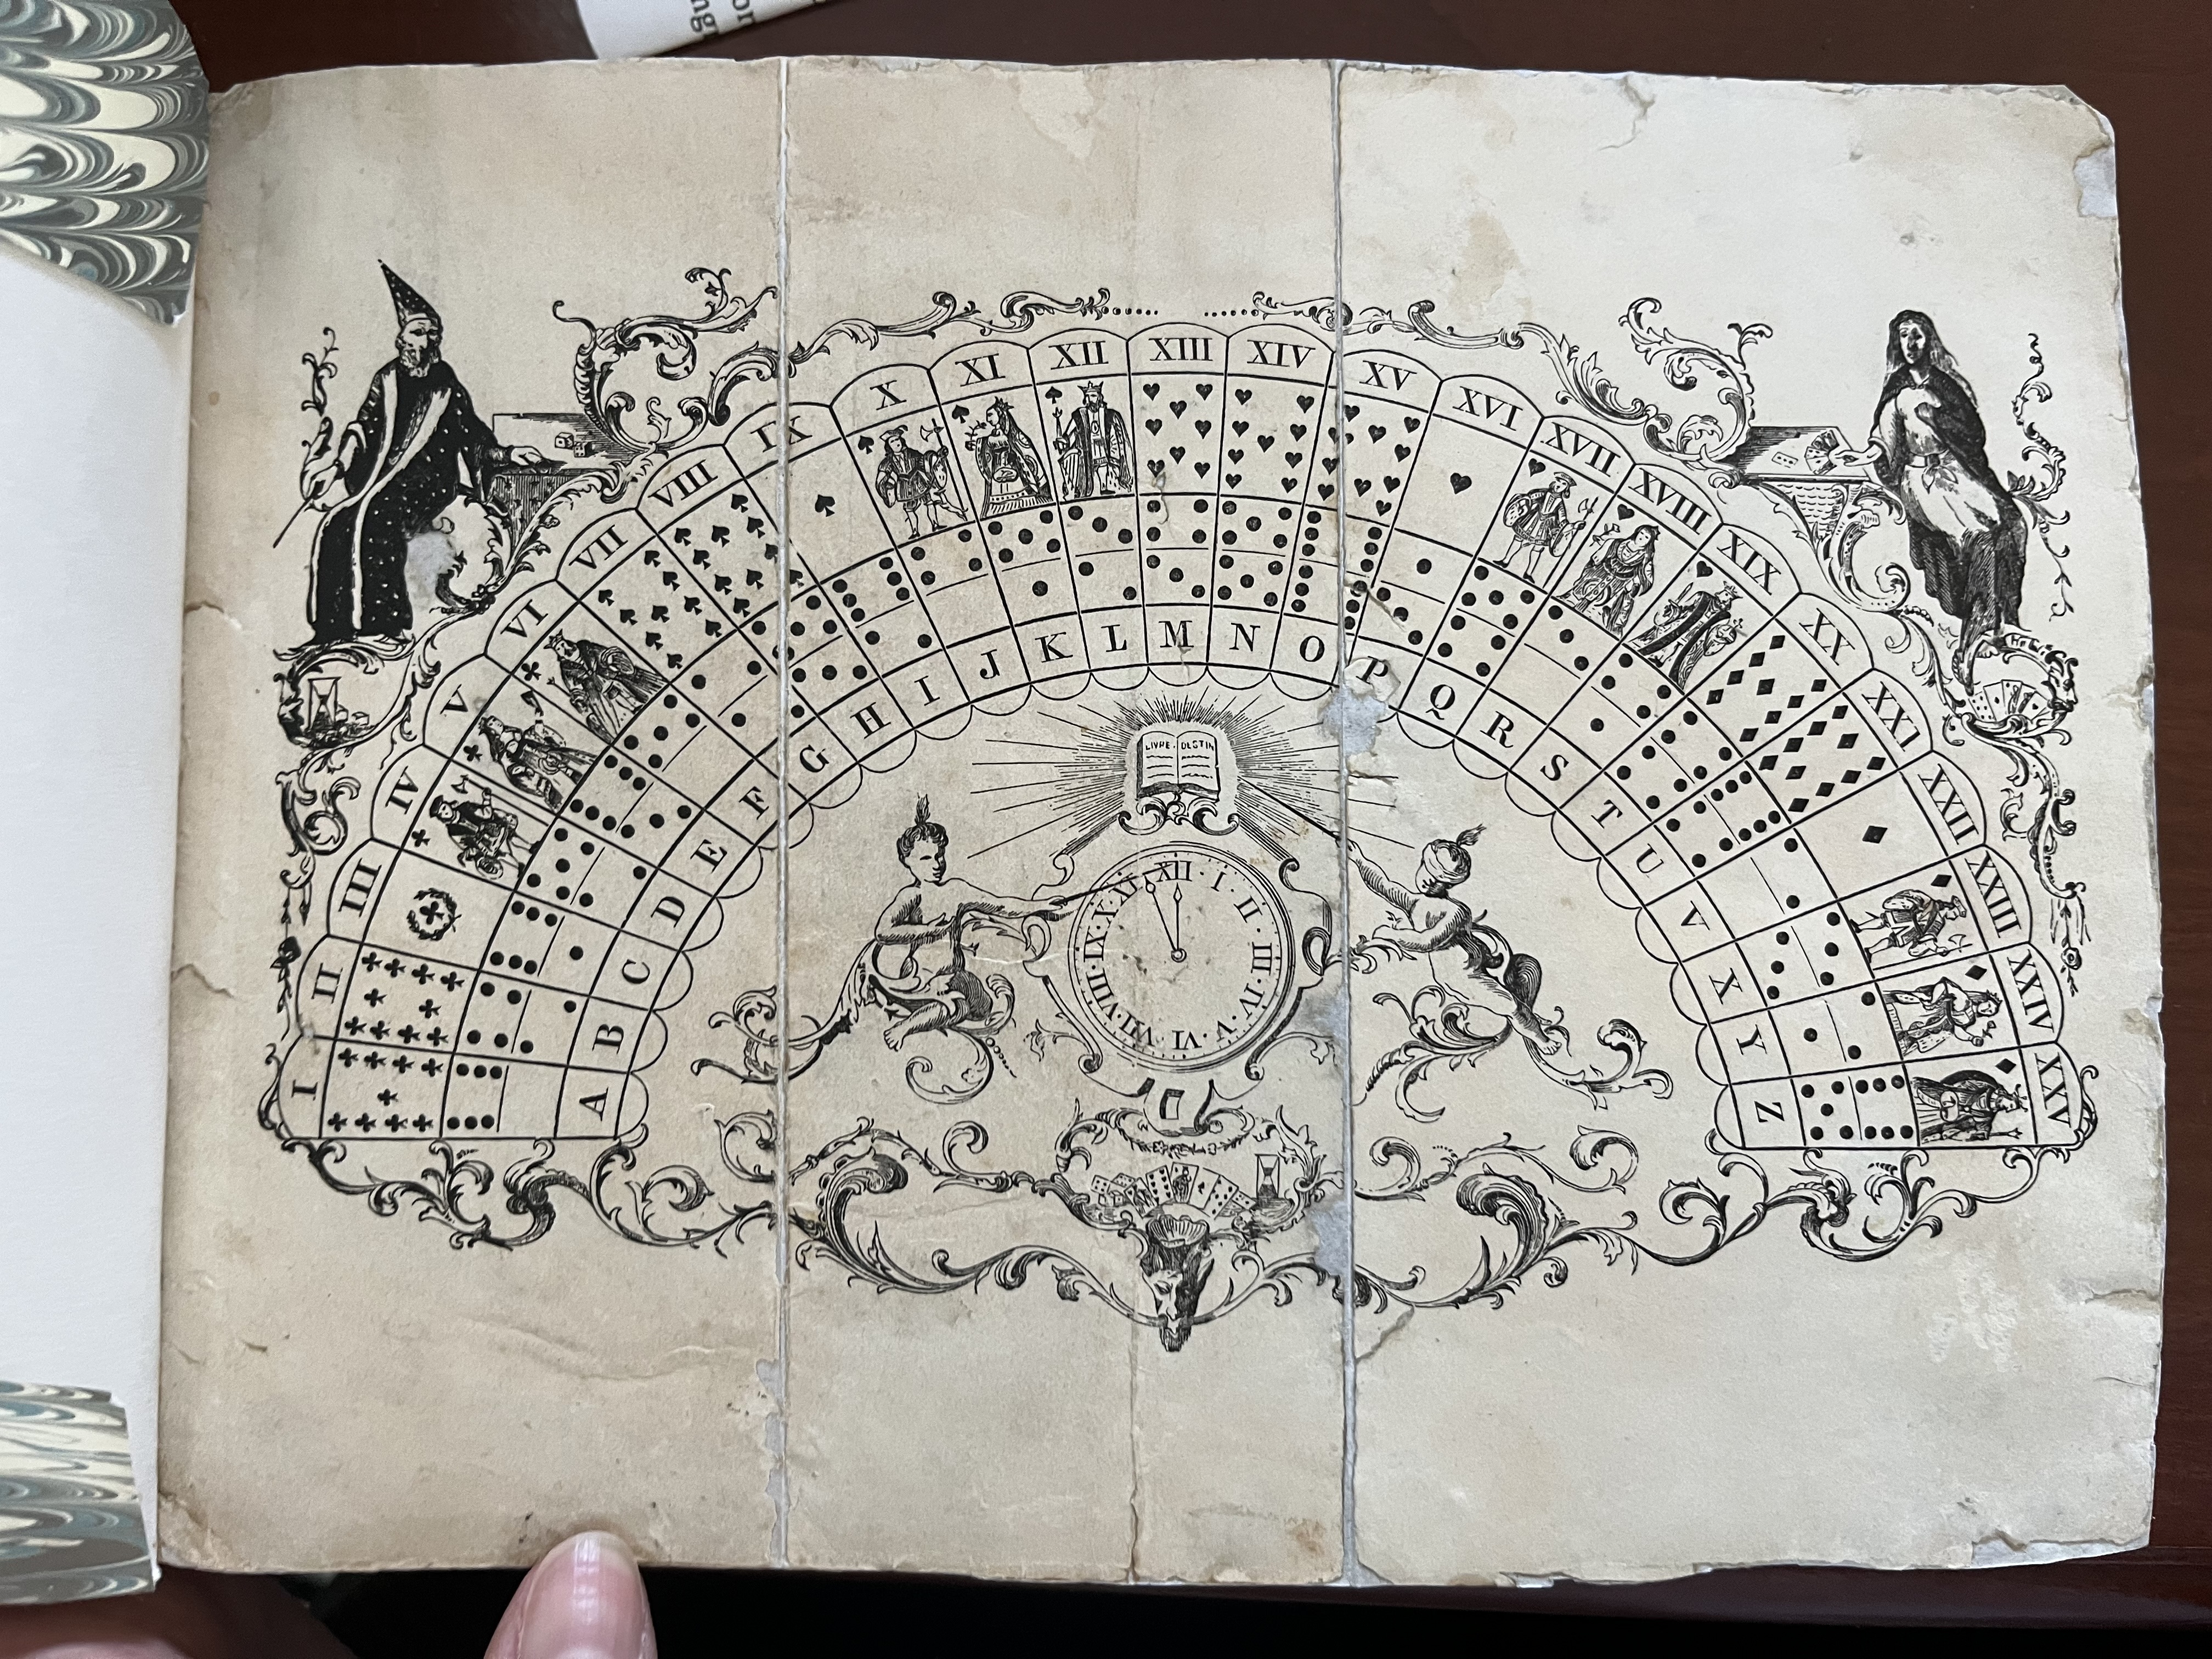 I II III IV V VI VII VIII IX X XI XII XIII XIV XV XVI XVII XVIII XIX XX XXI XXII XXIII XXIV XXV
A B C D E F G H I J K L M N O P Q R S T U V X Y Z
LIVRE · DESTIN
XII · I · II · III · IV · V · VI · VII · VIII · IX · X · XI